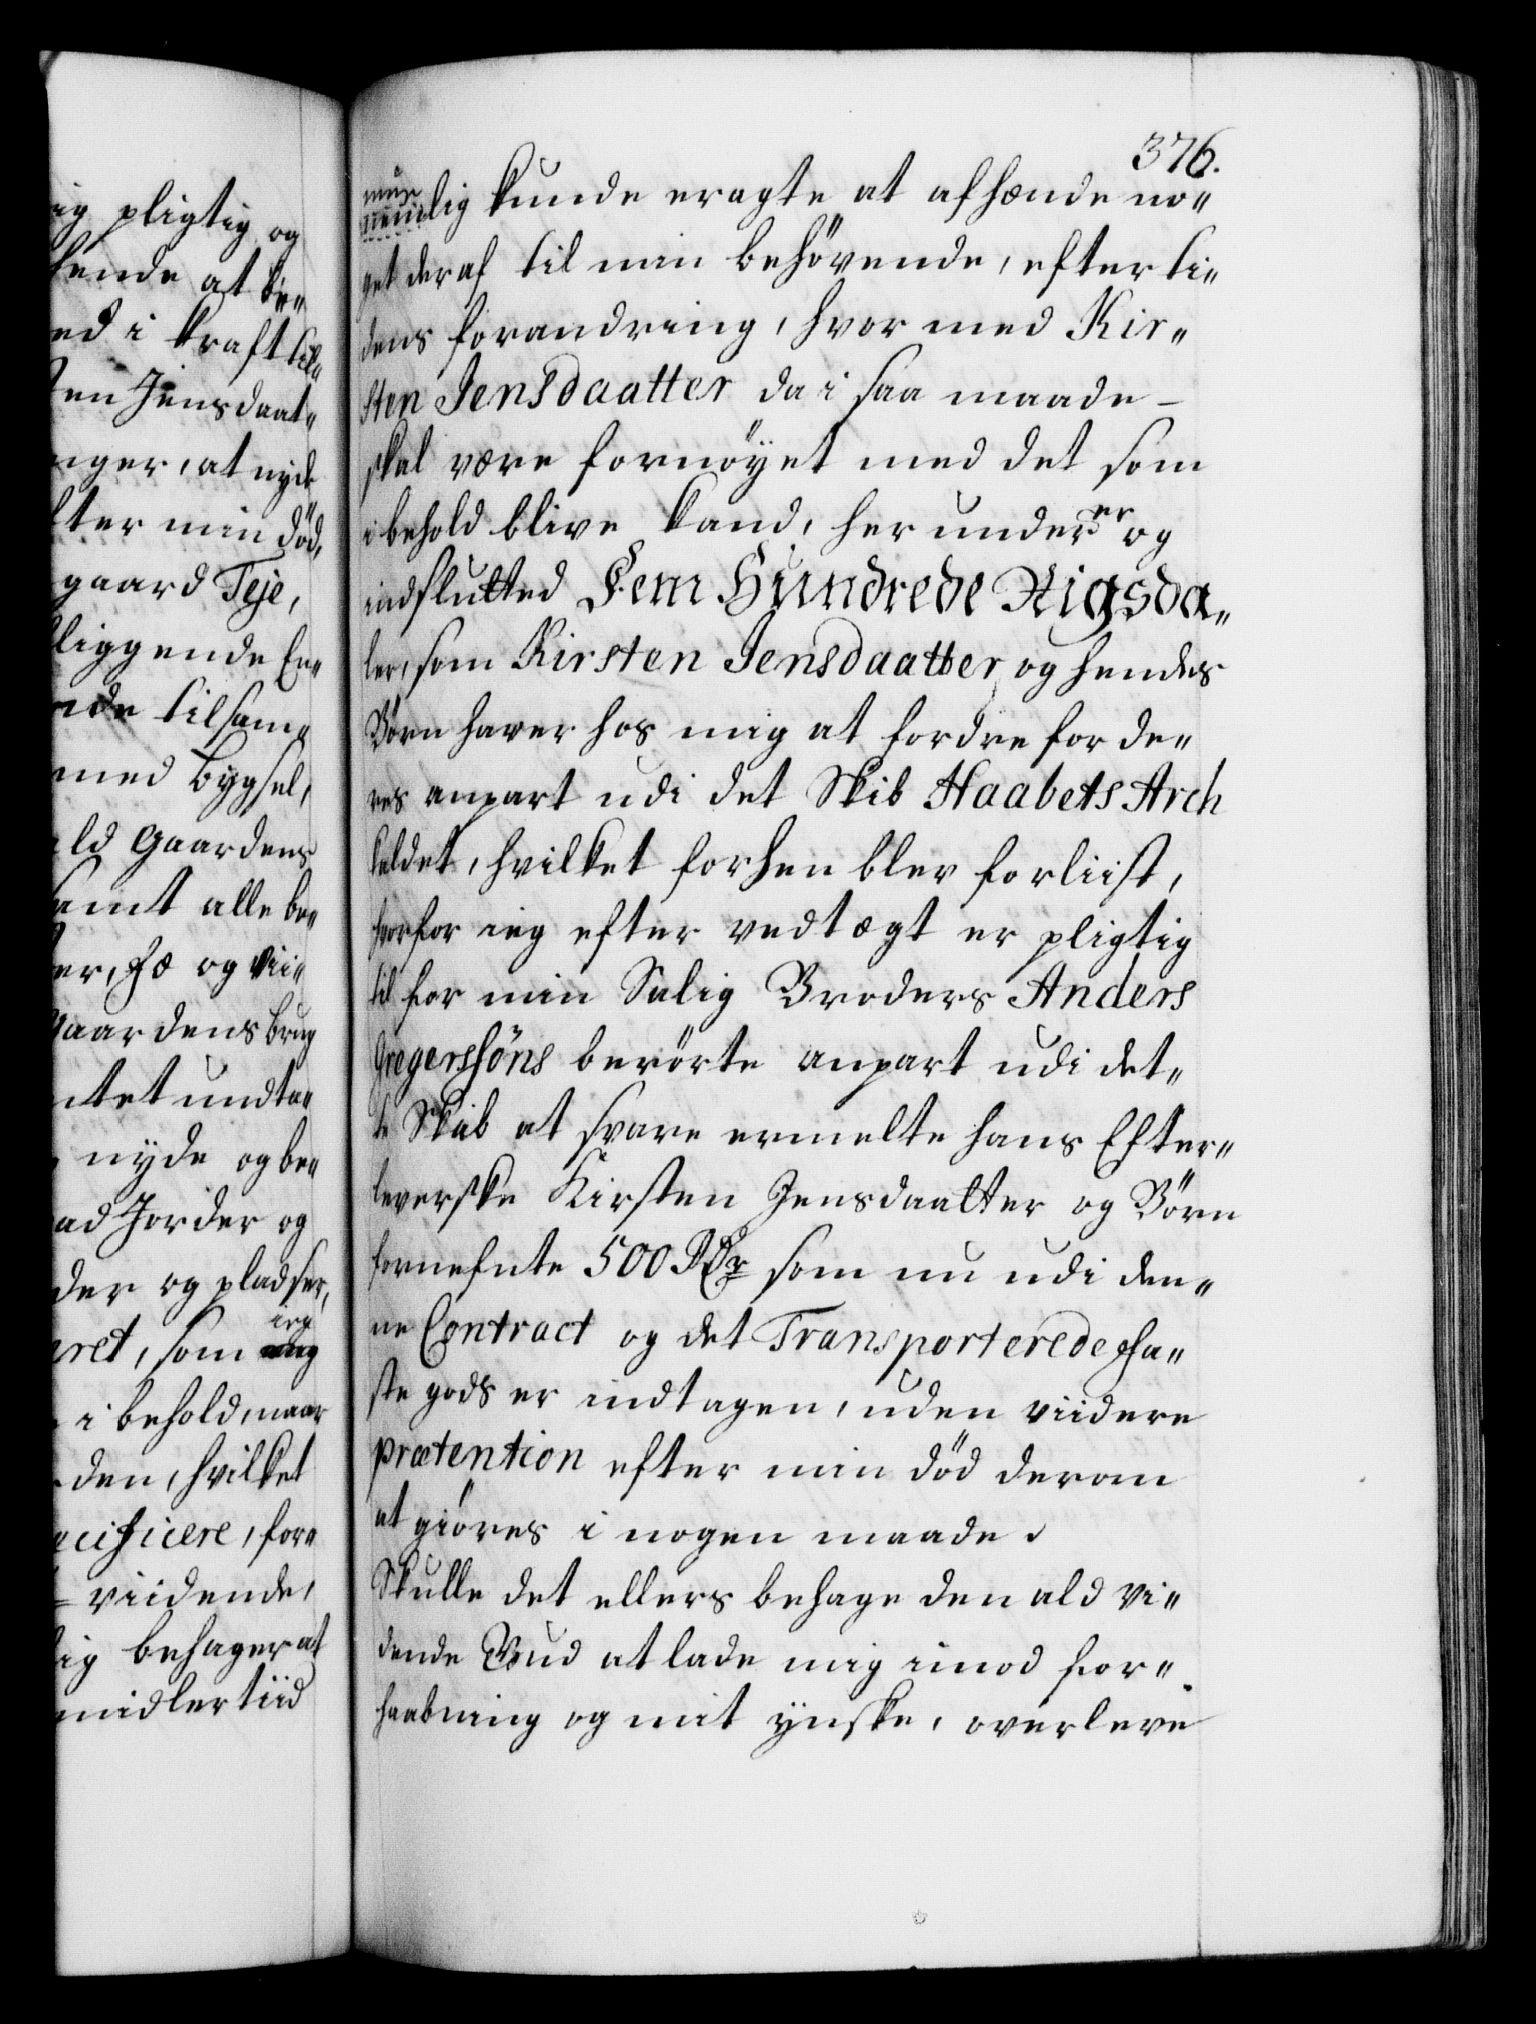 ig pligtig og
hende at be„
ed i kraft till
en Jensdaat„
nger, at nyde
fter min död,
gaard Teje,
liggende En„
nde tilsam„
med bygsel,
ald Gaardens
samt alle be„
er, Fæ og vii„
gaardens brug
ntet undta„
nyde og be„
ad Jorder og
der og pladser,
ieg
ret, som
i behold, naar
den, hvilket
ecificere, for„
viidende,
lig behager at
midlertiid
376.
lig kunde eragte at afhænde no„
get deraf til min behövende, efter ti„
dens forandring, hvor med Kir„
sten Jensdaatter da i saa maade –
skal være fornöyet med det som
i behold blive kand, her under er og
indslutted Fem Hundrede Rigsda„
ler, som Kirsten Jensdaatter og hendes
Börn haver hos mig at fordre for de„
res anpart udi det Skib Haabets Arch
kaldet, hvilket forhen blev forliist,
hvorfor ieg efter vedtægt er pligtig
til for min Salig Broders Anders
Gregersöns berörte anpart udi det„
te Skib at svare ermelte hans Efter„
leverske Kirsten Jensdaatter og Börn
fornefnte 500 Rdr som nu udi den„
ne Contract og det Transporterede Fa„
ste gods er indtagen, uden viidere
prætention efter min död derom
at giöres i nogen maade.
Skulle det ellers behage den ald vi„
dende Gud at lade mig imod for„
haabning og mit ynske, overleve